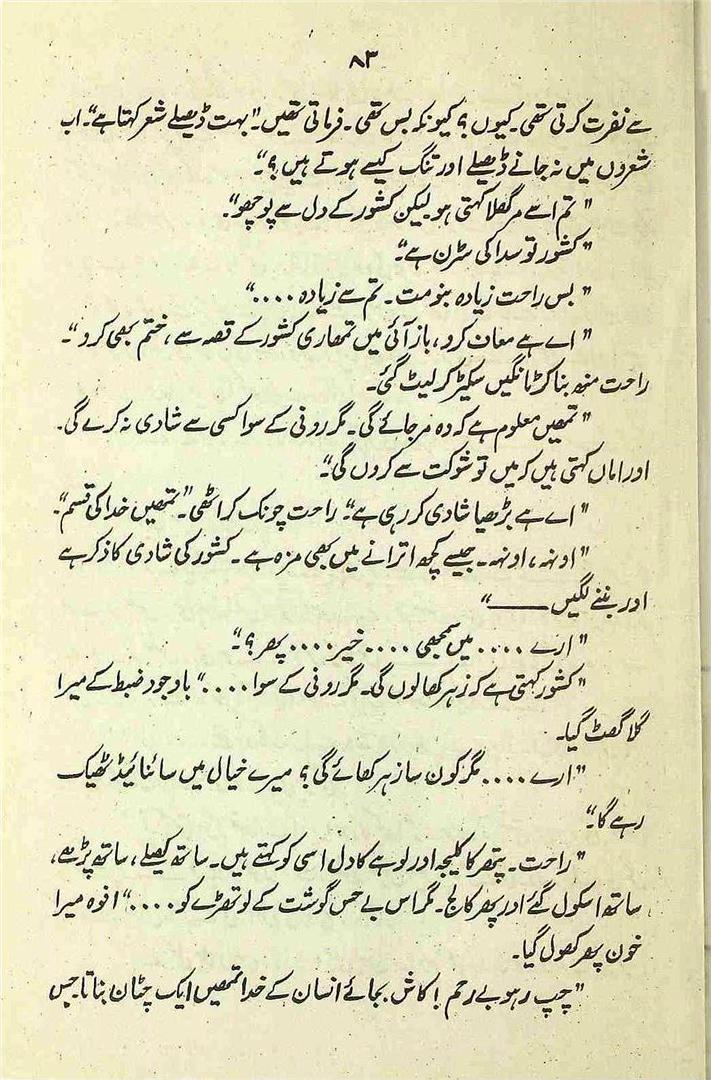 ۸۳
سے نفرت کرتی تھی۔ کیوں؟ کیونکہ بس تھی۔ فرماتی تھیں۔ "بہت ڈھیلے شعر کہتا ہے"۔ اب
شعروں میں نہ جانے ڈھیلے اور تنگ کیسے ہوتے ہیں؟"۔
"تم اسے مرگھلا کہتی ہو لیکن کشور کے دل سے پوچھو"۔
"کشور تو سدا کی سڑن ہے"۔
"بس راحت زیادہ بنو مت۔ تم سے زیادہ ...."
"اے ہے معان کرد، باز آئی میں تمھاری کشور کے قصہ سے، ختم بھی کرد"۔
راحت منھ بنا کر ٹانگیں سکیڑ کر لیٹ گئی۔
"تمھیں معلوم ہے کہ وہ مر جائے گی۔ مگر رونی کے سوا کسی سے شادی نہ کرے گی۔
اور اماں کہتی ہیں کہ میں تو شوکت سے کروں گی"۔
"اے ہے بڑھیا شادی کر رہی ہے"۔ راحت چونک کر اٹھی۔ "تمھیں خدا کی قسم"۔
"اونہہ، اونہہ۔ جیسے کچھ اترانے میں بھی مزہ ہے۔ کشور کی شادی کا ذکر ہے
اور بننے لگیں ——"
"ارے .... میں سمجھی .... خیر .... پھر؟"۔
"کشور کہتی ہے کہ زہر کھا لوں گی۔ مگر رونی کے سوا ...." باوجود ضبط کے میرا
گلا گھٹ گیا۔
"ارے .... مگر کون سا زہر کھائے گی؟ میرے خیال میں سائنائیڈ ٹھیک
رہے گا"۔
"راحت۔ پتھر کا کلیجہ اور لوہے کا دل اسی کو کہتے ہیں۔ ساتھ کھیلے، ساتھ پڑھے،
ساتھ اسکول گئے اور پھر کالج۔ مگر اس بے حس گوشت کے لوتھڑے کو ...." افوہ میرا
خون پھر کھول گیا۔
"چپ رہو بے رحم! کاش بجائے انسان کے خدا تمھیں ایک چٹان بناتا جس